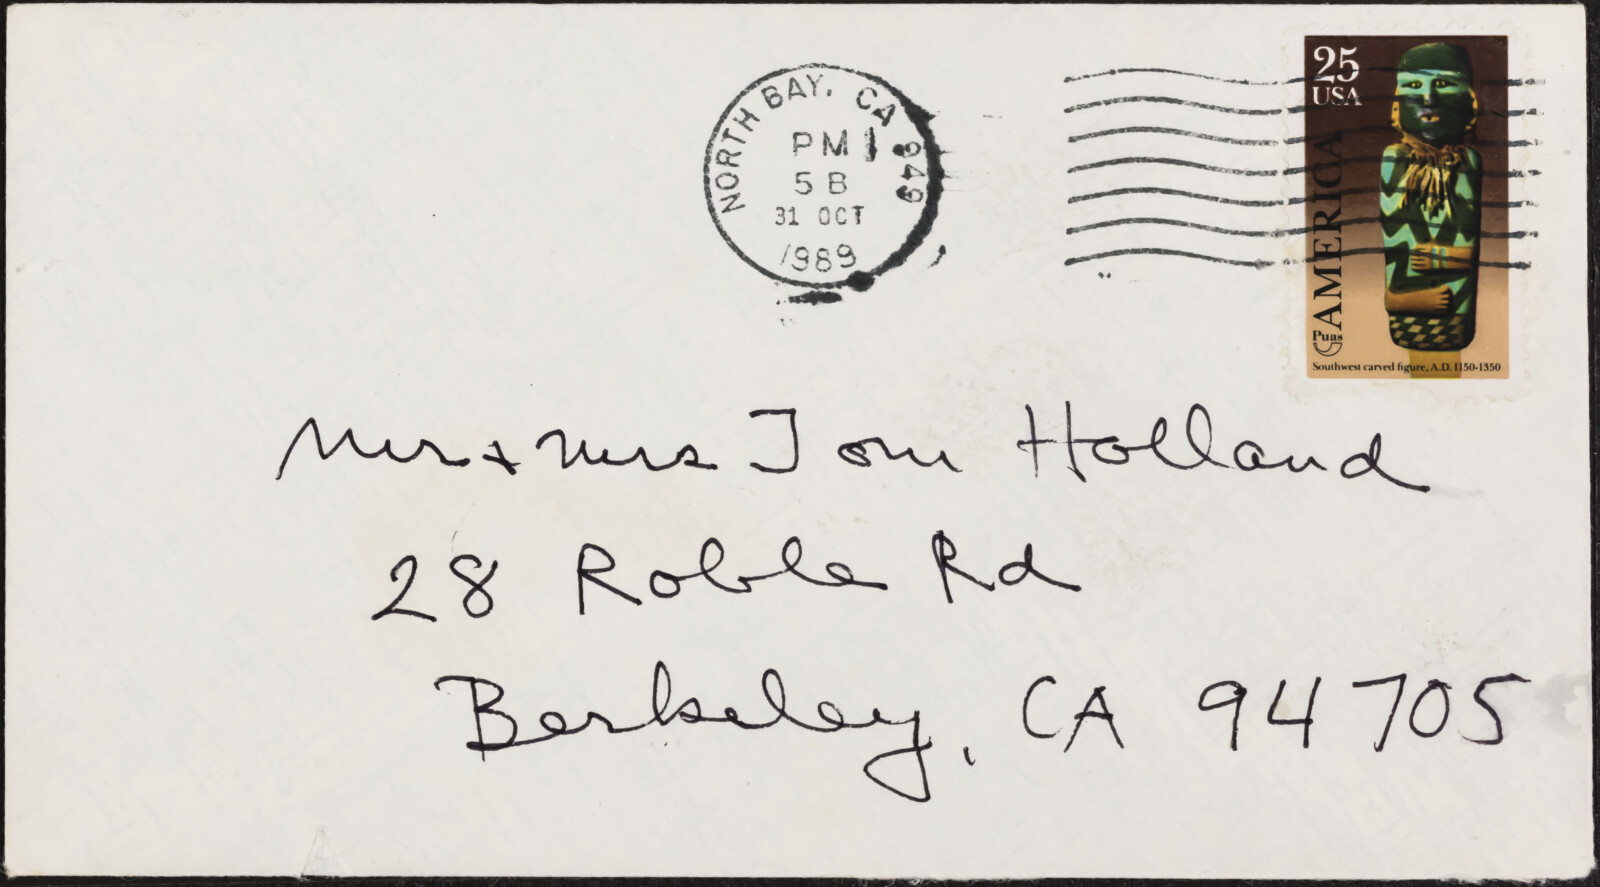 NORTH BAY, CA 949
PM
5B
31 OCT
1989
25
USA
AMERICA
Puas
Southwest carved figure, A.D. 1150-1350
Mr + Mrs Tom Holland
28 Roble Rd
Berkeley, CA 94705